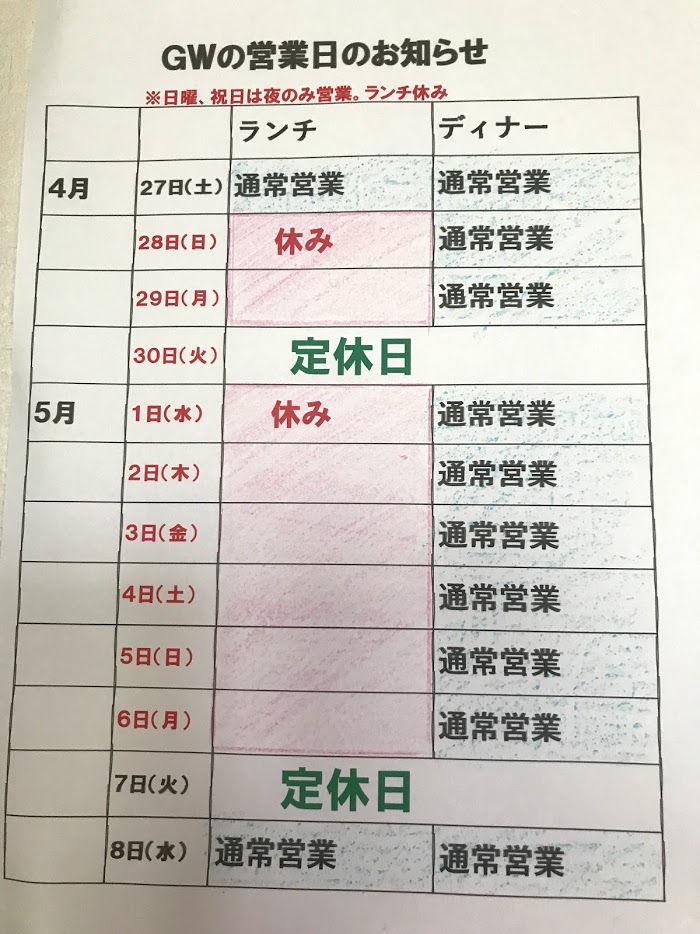 GWの営業日のお知らせ
※日曜、祝日は夜のみ営業。ランチ休み
ランチ ディナー
4月 27日(土) 通常営業 通常営業
28日(日) 休み 通常営業
29日(月) 通常営業
30日(火) 定休日
5月 1日(水) 休み 通常営業
2日(木) 通常営業
3日(金) 通常営業
4日(土) 通常営業
5日(日) 通常営業
6日(月) 通常営業
7日(火) 定休日
8日(水) 通常営業 通常営業